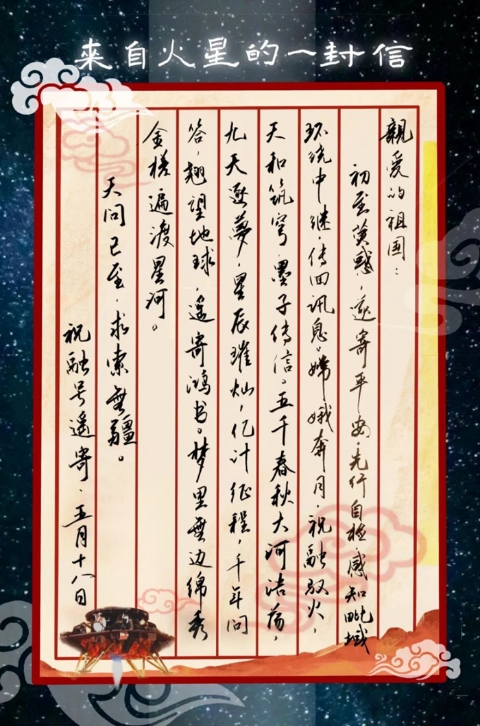 來自火星的一封信
親爱的祖国：
初至荧惑，遥寄平安。先行自检，感知地域
环绕中继，传回讯息。嫦娥奔月，祝融驭火，
天和筑穹，墨子传信。五千春秋大河浩荡，
九天逐夢，星辰璀灿，亿计征程，千年问
答，翘望地球，遥寄鸿书。梦里無边绵秀
金槎遍渡星河。
天问已至，求索無疆。
祝融号遥寄，五月十八日